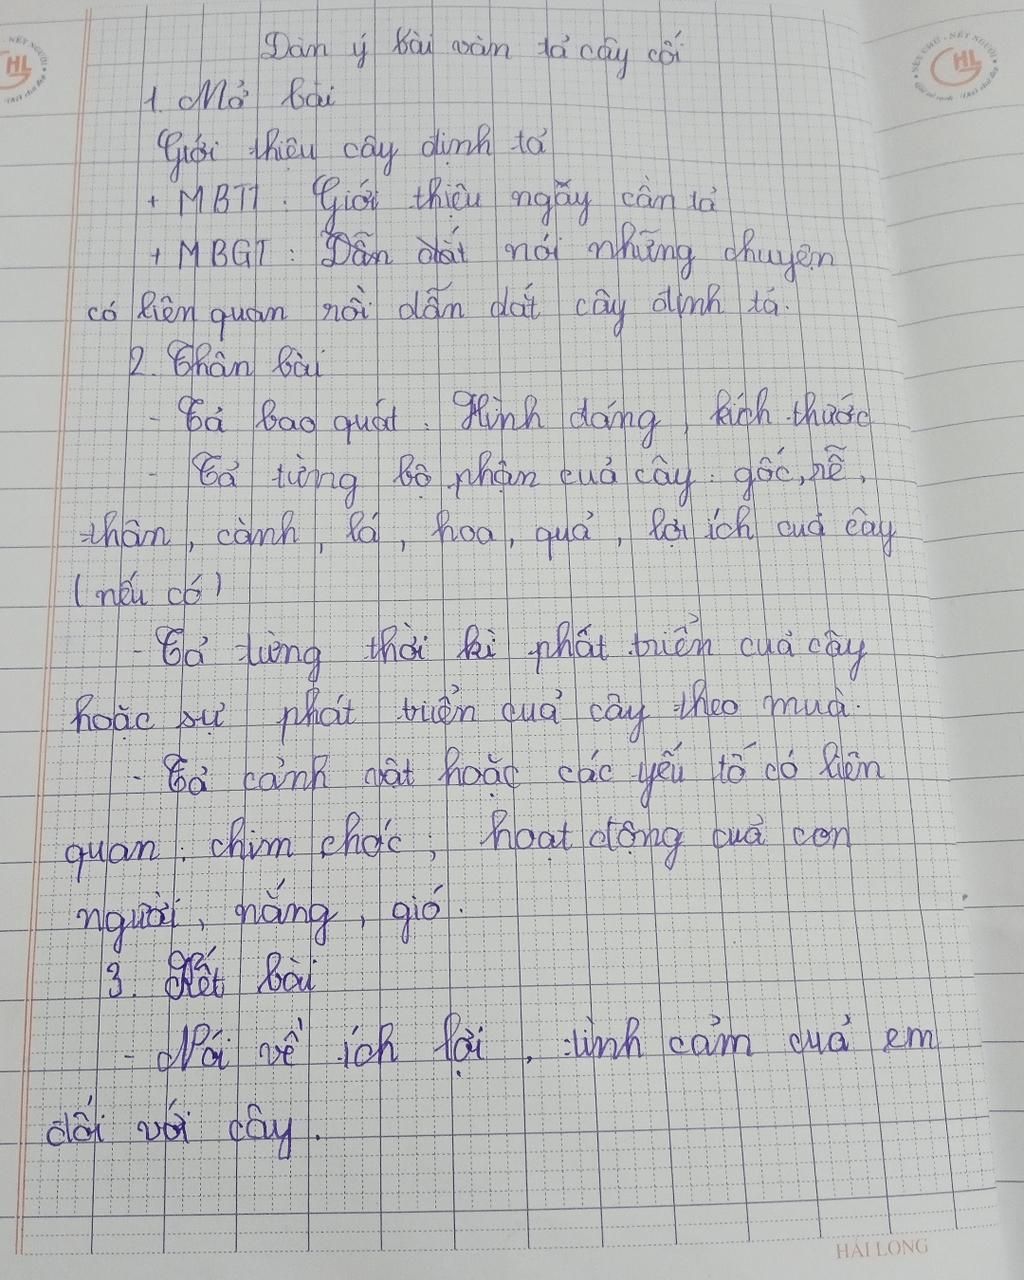 Dàn ý bài văn tả cây cối
1. Mở bài
Giới thiệu cây định tả
+ MBTT : Giới thiệu ngãy cần tả
+ MBGT : Dẫn dắt nói những chuyện
có liên quan rồi dẫn dắt cây định tả.
2. Thân bài
- Tả bao quát. Hình dáng, kích thước
- Tả từng bộ phận cuả cây: gốc, rễ,
thân, cành, lá, hoa, quả, lợi ích cuả cây
(nếu có)
- Tả từng thời kì phất triển cuả cây
hoặc sự phát triển cuả cây theo muà.
- Tả cảnh vật hoặc các yếu tố có liên
quan: chim chóc, hoạt động cuả con
người, nắng, gió.
3. Kết bài
- Nói về ích lợi, tình cảm cuả em
đối với cây.
HẢI LONG
HL